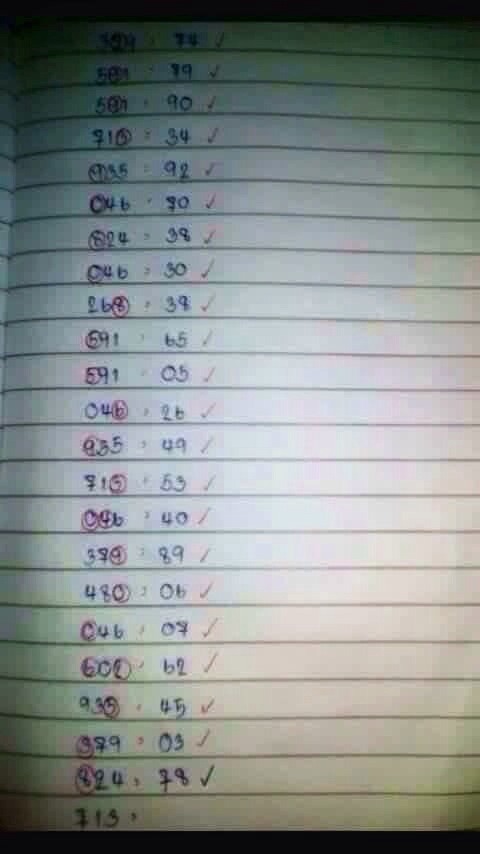 379 : 74 ✓
591 : 79 ✓
591 : 90 ✓
713 : 34 ✓
935 : 92 ✓
046 : 70 ✓
824 : 38 ✓
046 : 30 ✓
268 : 38 ✓
591 65 ✓
591 05 ✓
046 : 26 ✓
935 : 49 ✓
713 : 53 ✓
046 : 40 ✓
379 : 89 ✓
480 : 06 ✓
046 : 07 ✓
602 : 62 ✓
935 : 45 ✓
379 : 03 ✓
824 : 78 ✓
713 :